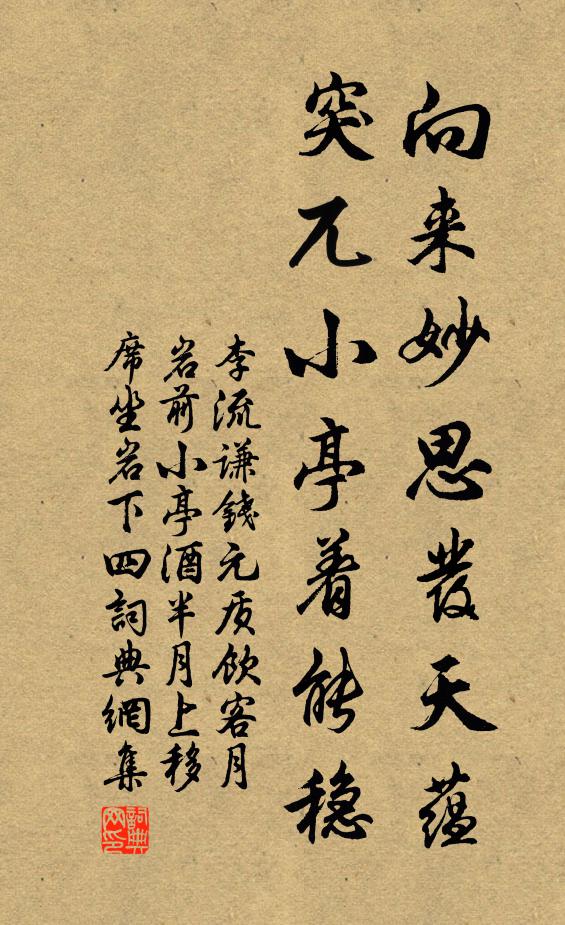 向来妙思發天蕴
突兀小亭着能稳
李流谦錢元质飲客月
岩前小亭酒半月上移
席坐岩下四詞典網集
詞典网印